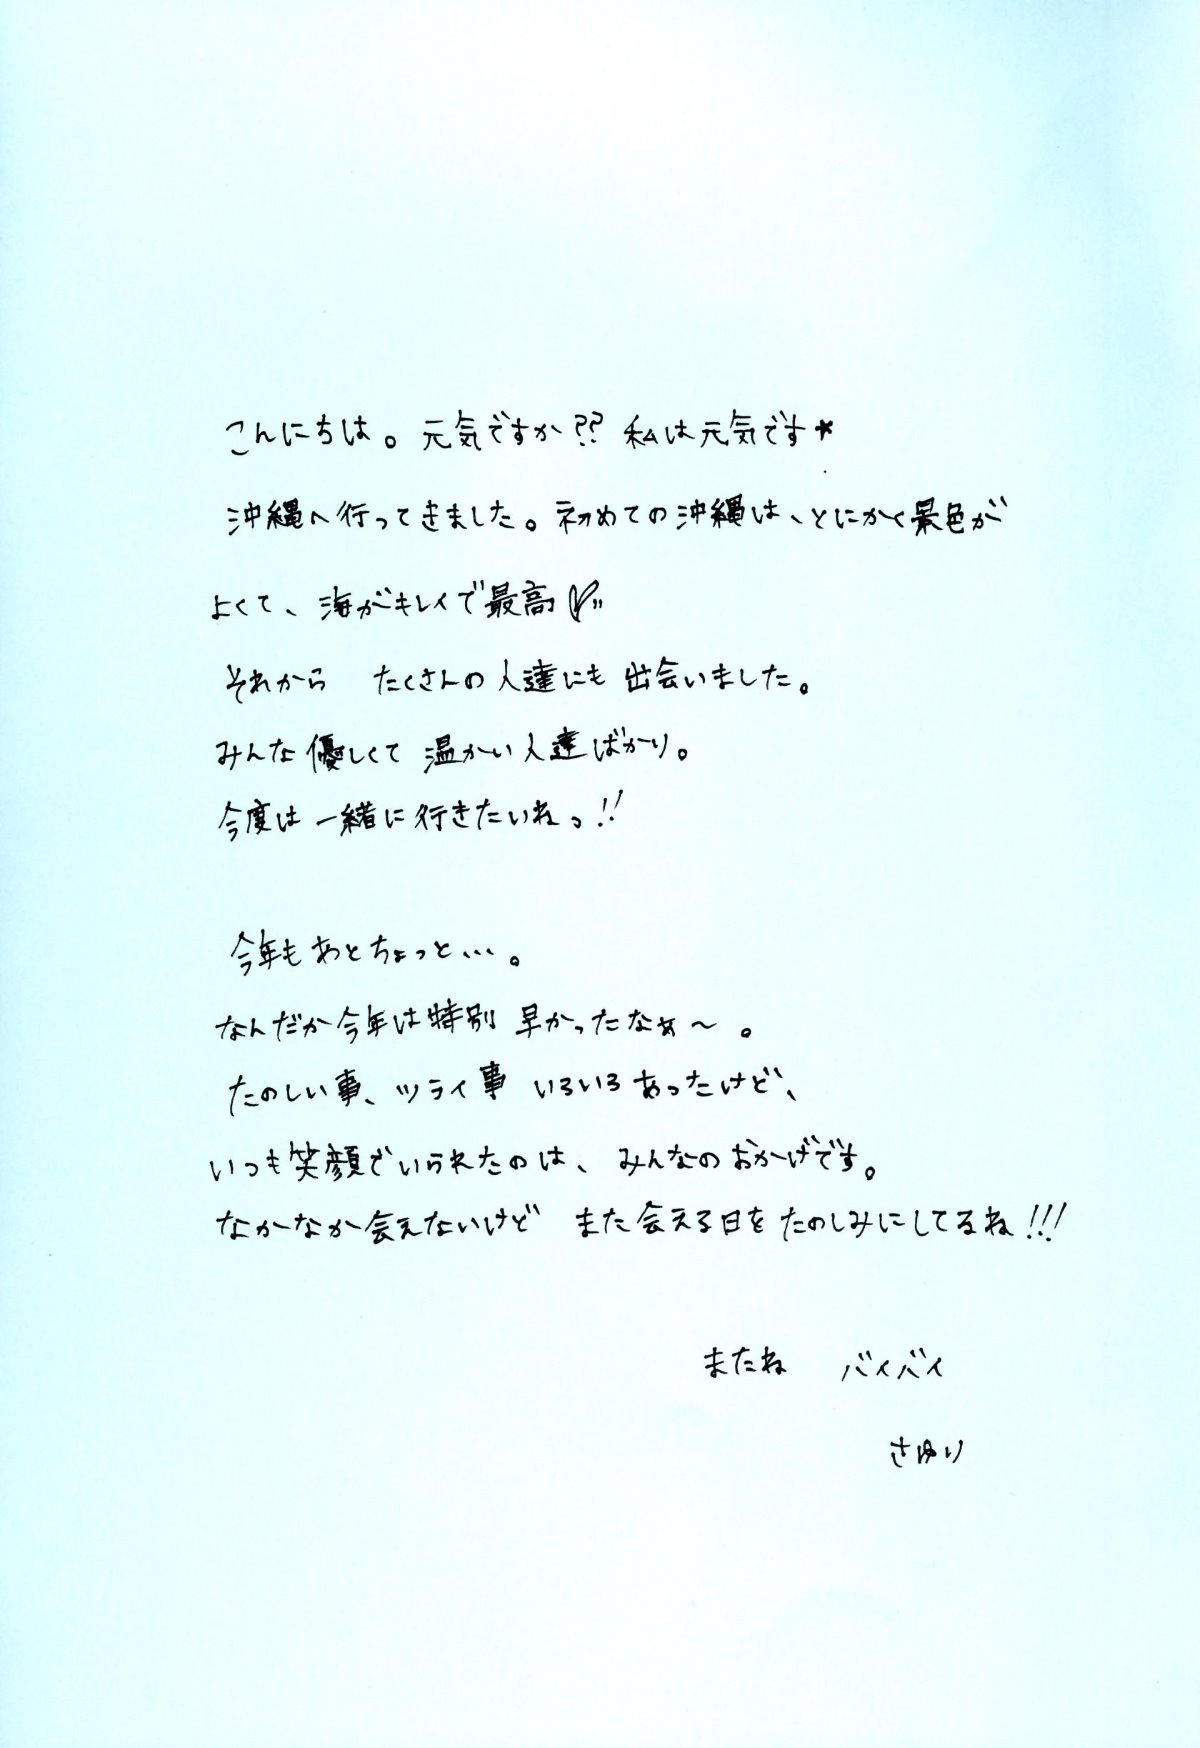 こんにちは。元気ですか?? 私は元気です★
沖縄へ行ってきました。初めての沖縄は、とにかく景色が
よくて、海がキレイで最高♡〃
それから　たくさんの人達にも出会いました。
みんな優しくて 温かい人達ばかり。
今度は一緒に行きたいねっ!!
今年もあとちょっと…。
なんだか今年は特別 早かったなぁ～。
たのしい事、ツライ事 いろいろあったけど、
いつも笑顔でいられたのは、みんなのおかげです。
なかなか会えないけど また会える日をたのしみにしてるね!!!
またね　バイバイ
さゆり